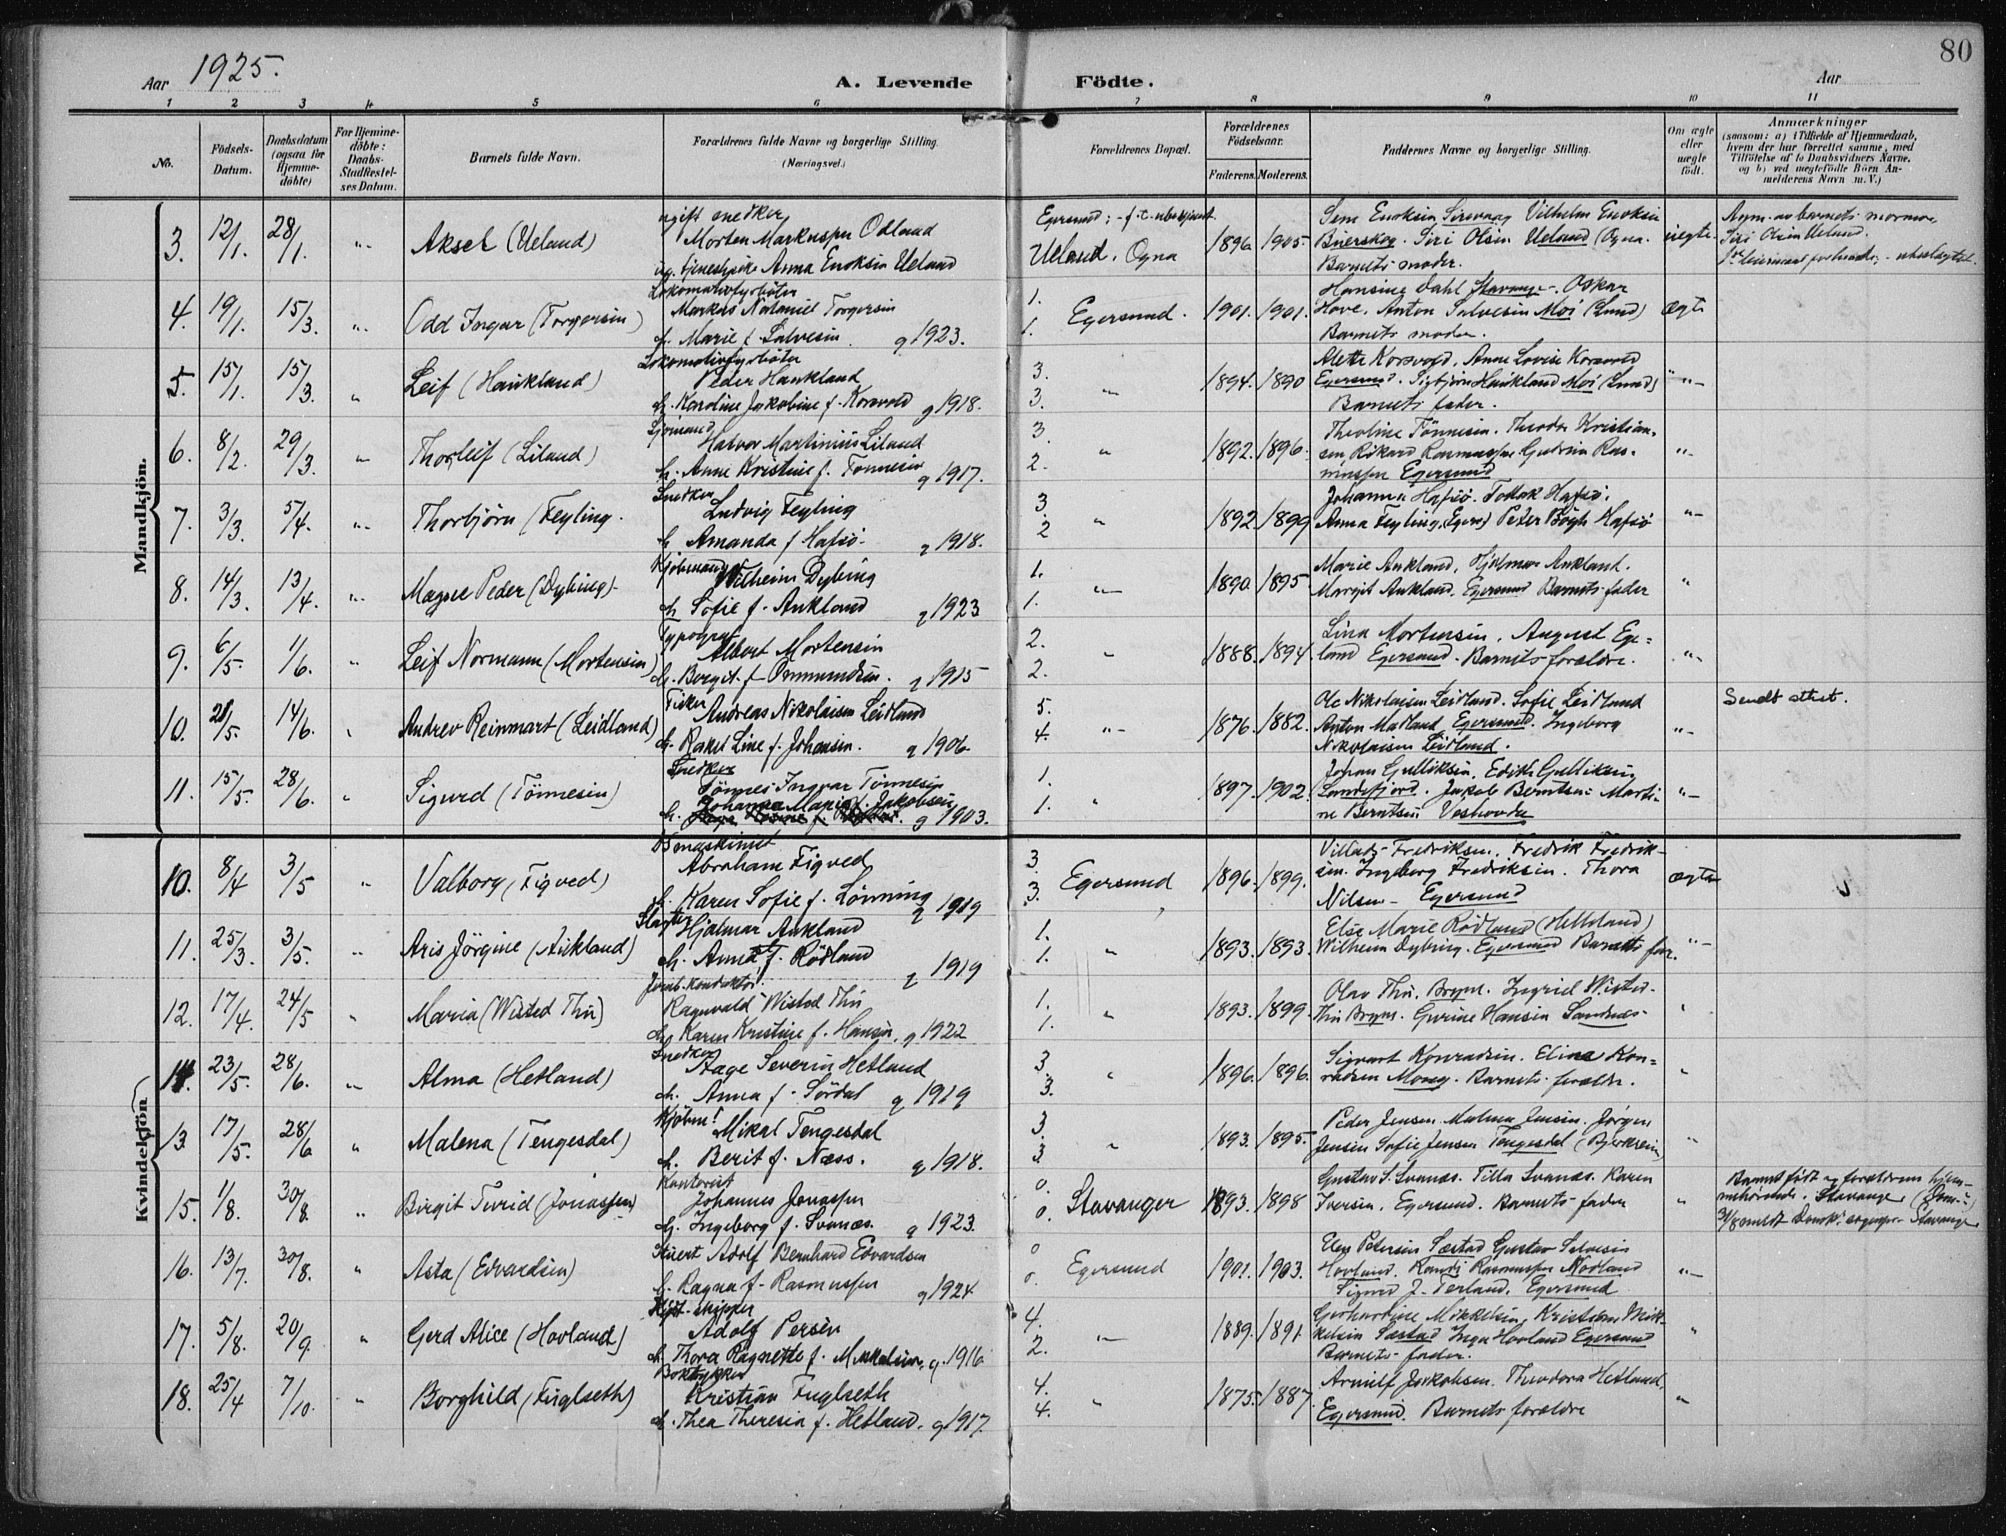 80
Aar 1925.
A. Levende Födte.
Aar
1 2 3 4 5 6 7 8 9 10 11
No.
Födsels-Datum.
Daabsdatum (ogsaa for Hjemme-döbte)
For Hjemme-döbte: Daabs-Stadfæstel-ses Datum.
Barnets fulde Navn.
Forældrenes fulde Navne og borgerlige Stilling. (Næringsvei.)
Forældrenes Bopæl.
Forældrenes Födselsaar.
Faderens. Moderens.
Faddernes Navne og borgerlige Stilling.
Om ægte eller uægte födt.
Anmærkninger
(saasom: a) i Tilfælde af Hjemmedaab, hvem der har forrettet samme, med Tilföielse af to Daabsvidners Navne, og b) ved uægtefödte Börn An-melderens Navn m. V.)
Mandkjön.
ugift snedker
3. 12/1. 28/1. Aksel (Ueland) Morten Markussen Odland
ug. tjenestepike Anna Enoksen Ueland
Egersund
Ueland. Ogna 1896. 1905. Siri Olsen Ueland (Ogna. uegte
Barnets moder.
Siri Olsen Ueland.
Lokomotivfyrböter
4. 19/1. 15/3. Odd Ingvar (Torgersen) Markus Nataniel Torgersen
h. Marie f. Salvesen g 1923.
1. 1. Egersund. 1901. 1901. Hansine Dahl Stavanger. Oskar
Hove. Anton Salvesen Moi (Lund) ægte
Barnets moder.
Lokomotivfyrböter
5. 15/1. 15/3. Leif (Haukland) Peder Haukland
h. Karoline Jakobine f. Korsvold g 1918.
3. 3. 1894. 1890 Alette Korsvold, Anne Lovise Korsvold
Egersund. Sigbjörn Haukland Moi (Lund)
Barnets fader.
Sjömand
6. 8/2. 29/3. Thorleif (Liland) Halvor Martinius Liland
h. Anne Kristine f. Tönnesen g 1917.
3. 2. 1892. 1896. Theoline Tönnesen. Theodor Kristian-
sen Rikard Rasmussen Gudrun Ras-
mussen Egersund
Snedker
7. 3/3. 5/4. Thorbjörn (Feyling. Ludvig Feyling
h Amanda f Hafsö. g 1918.
3. 2 1892 1899 Johanna Hafsö. Tollak Hafsö.
Anna Feyling, Egers) Peter Bögh Hafsö
Kjöbmand
8. 14/3. 13/4. Magne Peder (Dybing). Wilhelm Dybing
h Sofie f. Aukland g 1923
1. 1. 1890. 1895 Marie Aukland, Hjalmar Aukland.
Margit Aukland, Egersund Barnets fader
Typograf
9. 6/5. 1/6. Leif Normann (Mortensen) Albert Mortensen
h. Borgit. f Ommundsen. g 1915
2. 2. 1888. 1894 Lina Mortensen. August Ege-
land Egersund. Barnets forældre.
Fisker
10. 21/5. 14/6. Andrev Reinmart (Leidland) Andreas Nikolaisen Leidland
h. Rakel Line f. Johansen. g 1906
5. 4. 1876. 1882. Ole Nikolaisen Leidland. Sofie Leidland
Anton Madland Egersund. Ingeborg
Nikolaisen Leidland.
Sendt attest.
Snedker
11. 15/5. 28/6. Sigurd (Tönnesen) Tönnes Ingvar Tönnesen
Johanna Marie f. Jakobsen
h. g 1903.
1. 1. 1897. 1902. Johan Gulliksen, Edith Gulliksen
Sandefjord. Jakob Berntsen Marti-
ne Berntsen Veshovde
Kvindekjön
Bmaskinist
10. 8/4 3/5 Valborg (Figved) Abraham Figved
h. Karen Sofie f. Lönning g 1919
3. 3. Egersund 1896. 1899. Fredriksen. Fredrik Fredrik-
sen. Ingeborg Fredriksen. Thora ægte
Nilsen. Egersund
Slagter
11. 25/3. 3/5. Aris Jörgine (Aukland) Hjalmar Aukland
h. Anna f. Rödland g 1919
1. 1. 1893. 1893. Else Marie Rödland (Helleland)
Wilhelm Dybing. Egersund Barnets far.
Jernb. konduktör
12. 17/4. 24/5 Maria (Wisted Thu) Ragnvald Wisted Thu
h. Karen Kristine f. Hansen. g 1922
1. 1. 1893. 1899. Olav Thu. Bryne. Ingrid Wisted
Thu Bryne. Gurine Hansen Sandnes
Snedker
14. 23/5. 28/6. Alma (Hetland) Aage Severin Hetland
h. Anna f. Sördal g 1919
3. 3. 1896. 1896. Sigvart Konradsen. Elina Kon-
radsen Mong. Barnets forældre.
Kjöbm.
13. 17/5. 28/6 Malena (Tengesdal) Mikal Tengesdal
h. Berit f. Næss. g 1918.
3. 3. 1893. 1895. Peder Jensen Malena Jensen. Jörgen
Jensen Sofie Jensen Tengesdal (Bjerkreim)
Kontorist
15. 1/8. 30/8. Birgit Turid (Jonassen) Johannes Jonassen
h. Ingeborg f. Svanæs. g 1923.
0. 0. Stavanger 1893. 1898 Gustav S. Svanæs. Tilla Svanæs. Karen
Iversen. Egersund. Barnets fader
Barnet födt og forældrene hjem-
mehörende i Stavanger
Adolf Bernhard Edvardsen
16. 13/7. 30/8. Asta (Edvardsen)
h. Ragna f. Rasmussen g 1924
0 0. Egersund 1901. 1903. Petersen Sæstad Gustav Salvesen
Hovland. Randi Rasmussen Nodland
Sigurd J. Terland. Egersund
skipper
17. 5/8. 20/9. Gerd Alice (Hovland) Adolf Persen
h. Thora Ragnette f. Mikkelsen. g. 1916
4. 2. 1889. 1891 Gerhardine Mikkelsen, Kristian Mik-
kelsen Sæstad Inga Hovland Egersund
Barnets fader.
Boktrykker
18. 25/4 7/10. Borghild (Fuglseth) Kristian Fuglseth
h. Thea Theresia f. Hetland. g 1917.
4. 4. 1875. 1887. Arnulf Jakobsen. Theodora Hetland
Egersund. Barnets forældre